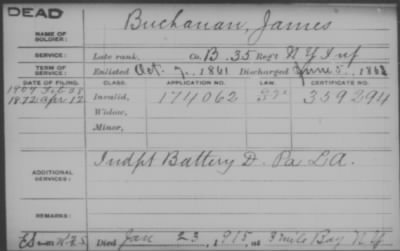 DEAD
NAME OF SOLDIER: Buchanan, James
SERVICE: Late rank, Co. B. 35 Reg't N Y Inf
TERM OF SERVICE: Enlisted Oct. 7, 1861 Discharged June 5, 1863
DATE OF FILING. CLASS. APPLICATION NO. LAW. CERTIFICATE NO.
1907 Feb
1872 Apr 12 Invalid, 174062 359294
Widow,
Minor,
ADDITIONAL SERVICES: Indpt Battery D. Pa L A.
REMARKS:
Died Jan 23, 1915, at 3 mile Bay N Y